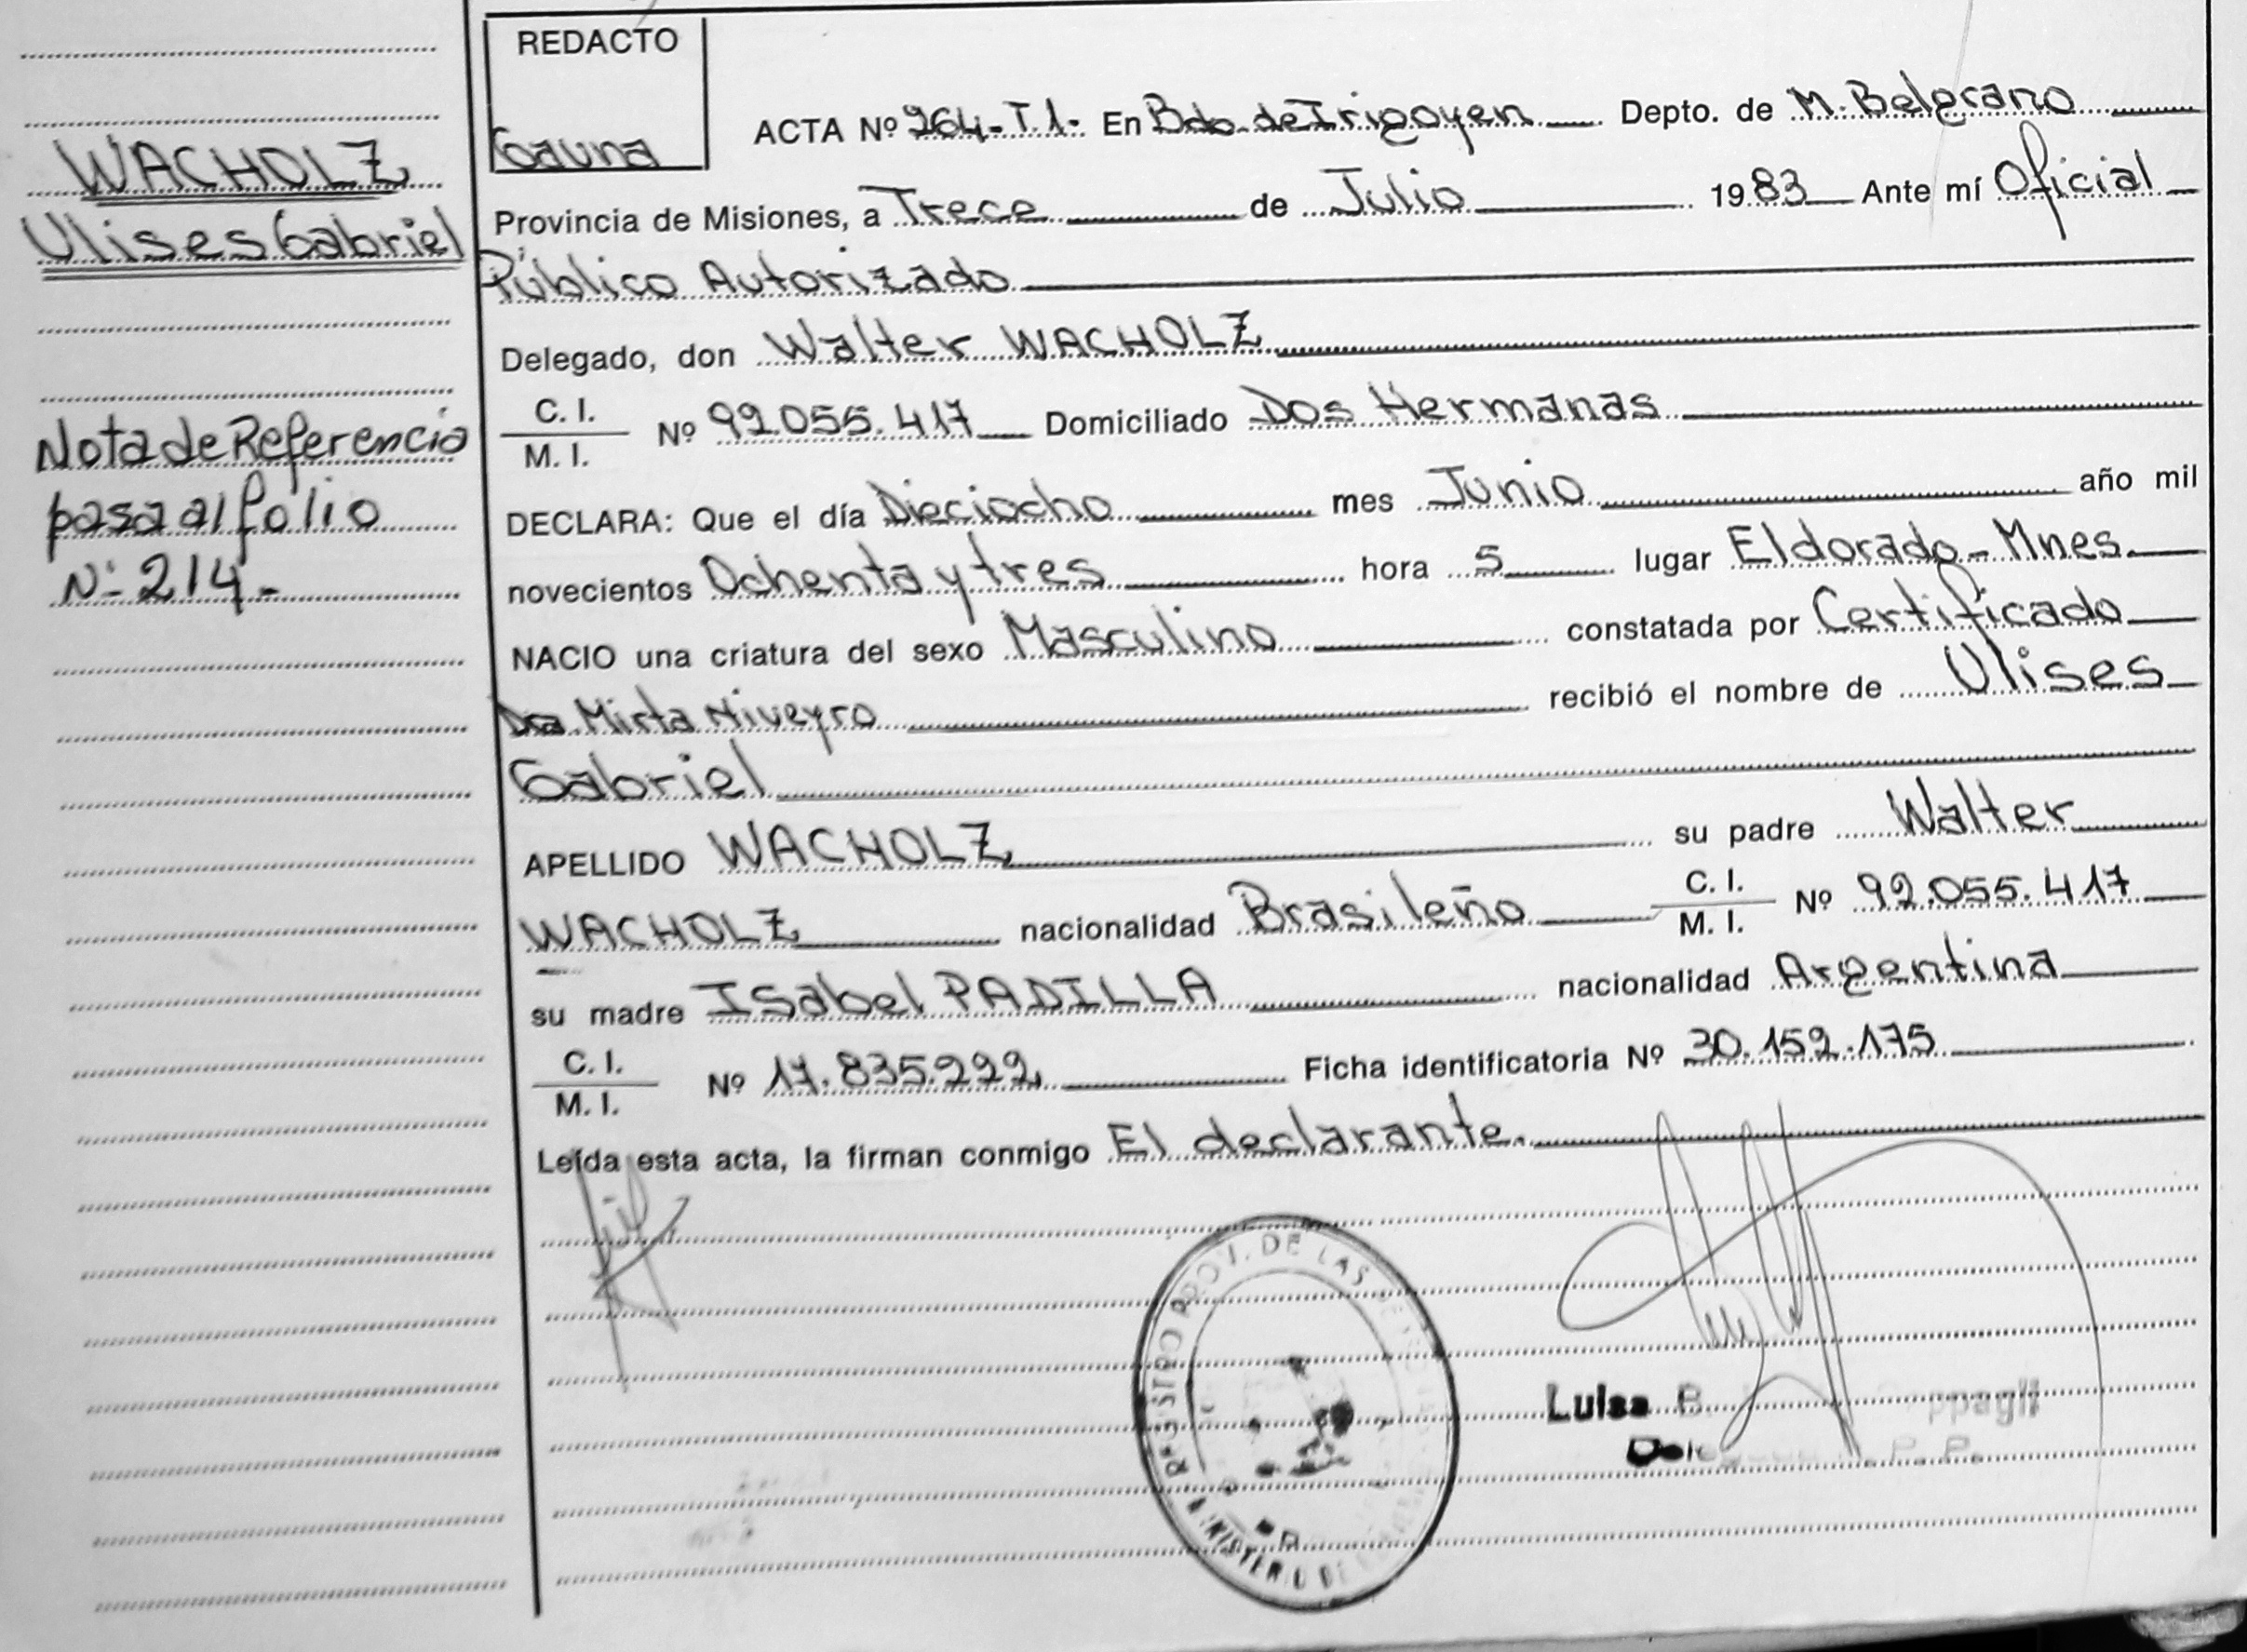 WACHOLZ
Ulises Gabriel
Nota de Referencia
pasa al folio
Nº 214-
REDACTO
Gauna
ACTA Nº 264-T.1. En Bdo. de Irigoyen Depto. de M. Belgrano
Provincia de Misiones, a Trece de Julio 1983 Ante mí Oficial
Público Autorizado
Delegado, don Walter WACHOLZ
C. I.
M. I. Nº 92.055.417 Domiciliado Dos Hermanas
DECLARA: Que el día Dieciocho mes Junio año mil
novecientos Ochenta y tres hora 5 lugar Eldorado-Mnes.
NACIO una criatura del sexo Masculino constatada por Certificado
Dra. Mirta Niveyro recibió el nombre de Ulises
Gabriel
APELLIDO WACHOLZ su padre Walter
WACHOLZ nacionalidad Brasileño C. I. M. I. Nº 92.055.417
su madre Isabel PADILLA nacionalidad Argentina
C. I.
M. I. Nº 17.835.222 Ficha identificatoria Nº 30.152.175
Leída esta acta, la firman conmigo El declarante.
REGISTRO PROV. DE LAS
MINISTERIO DE
Luisa B.